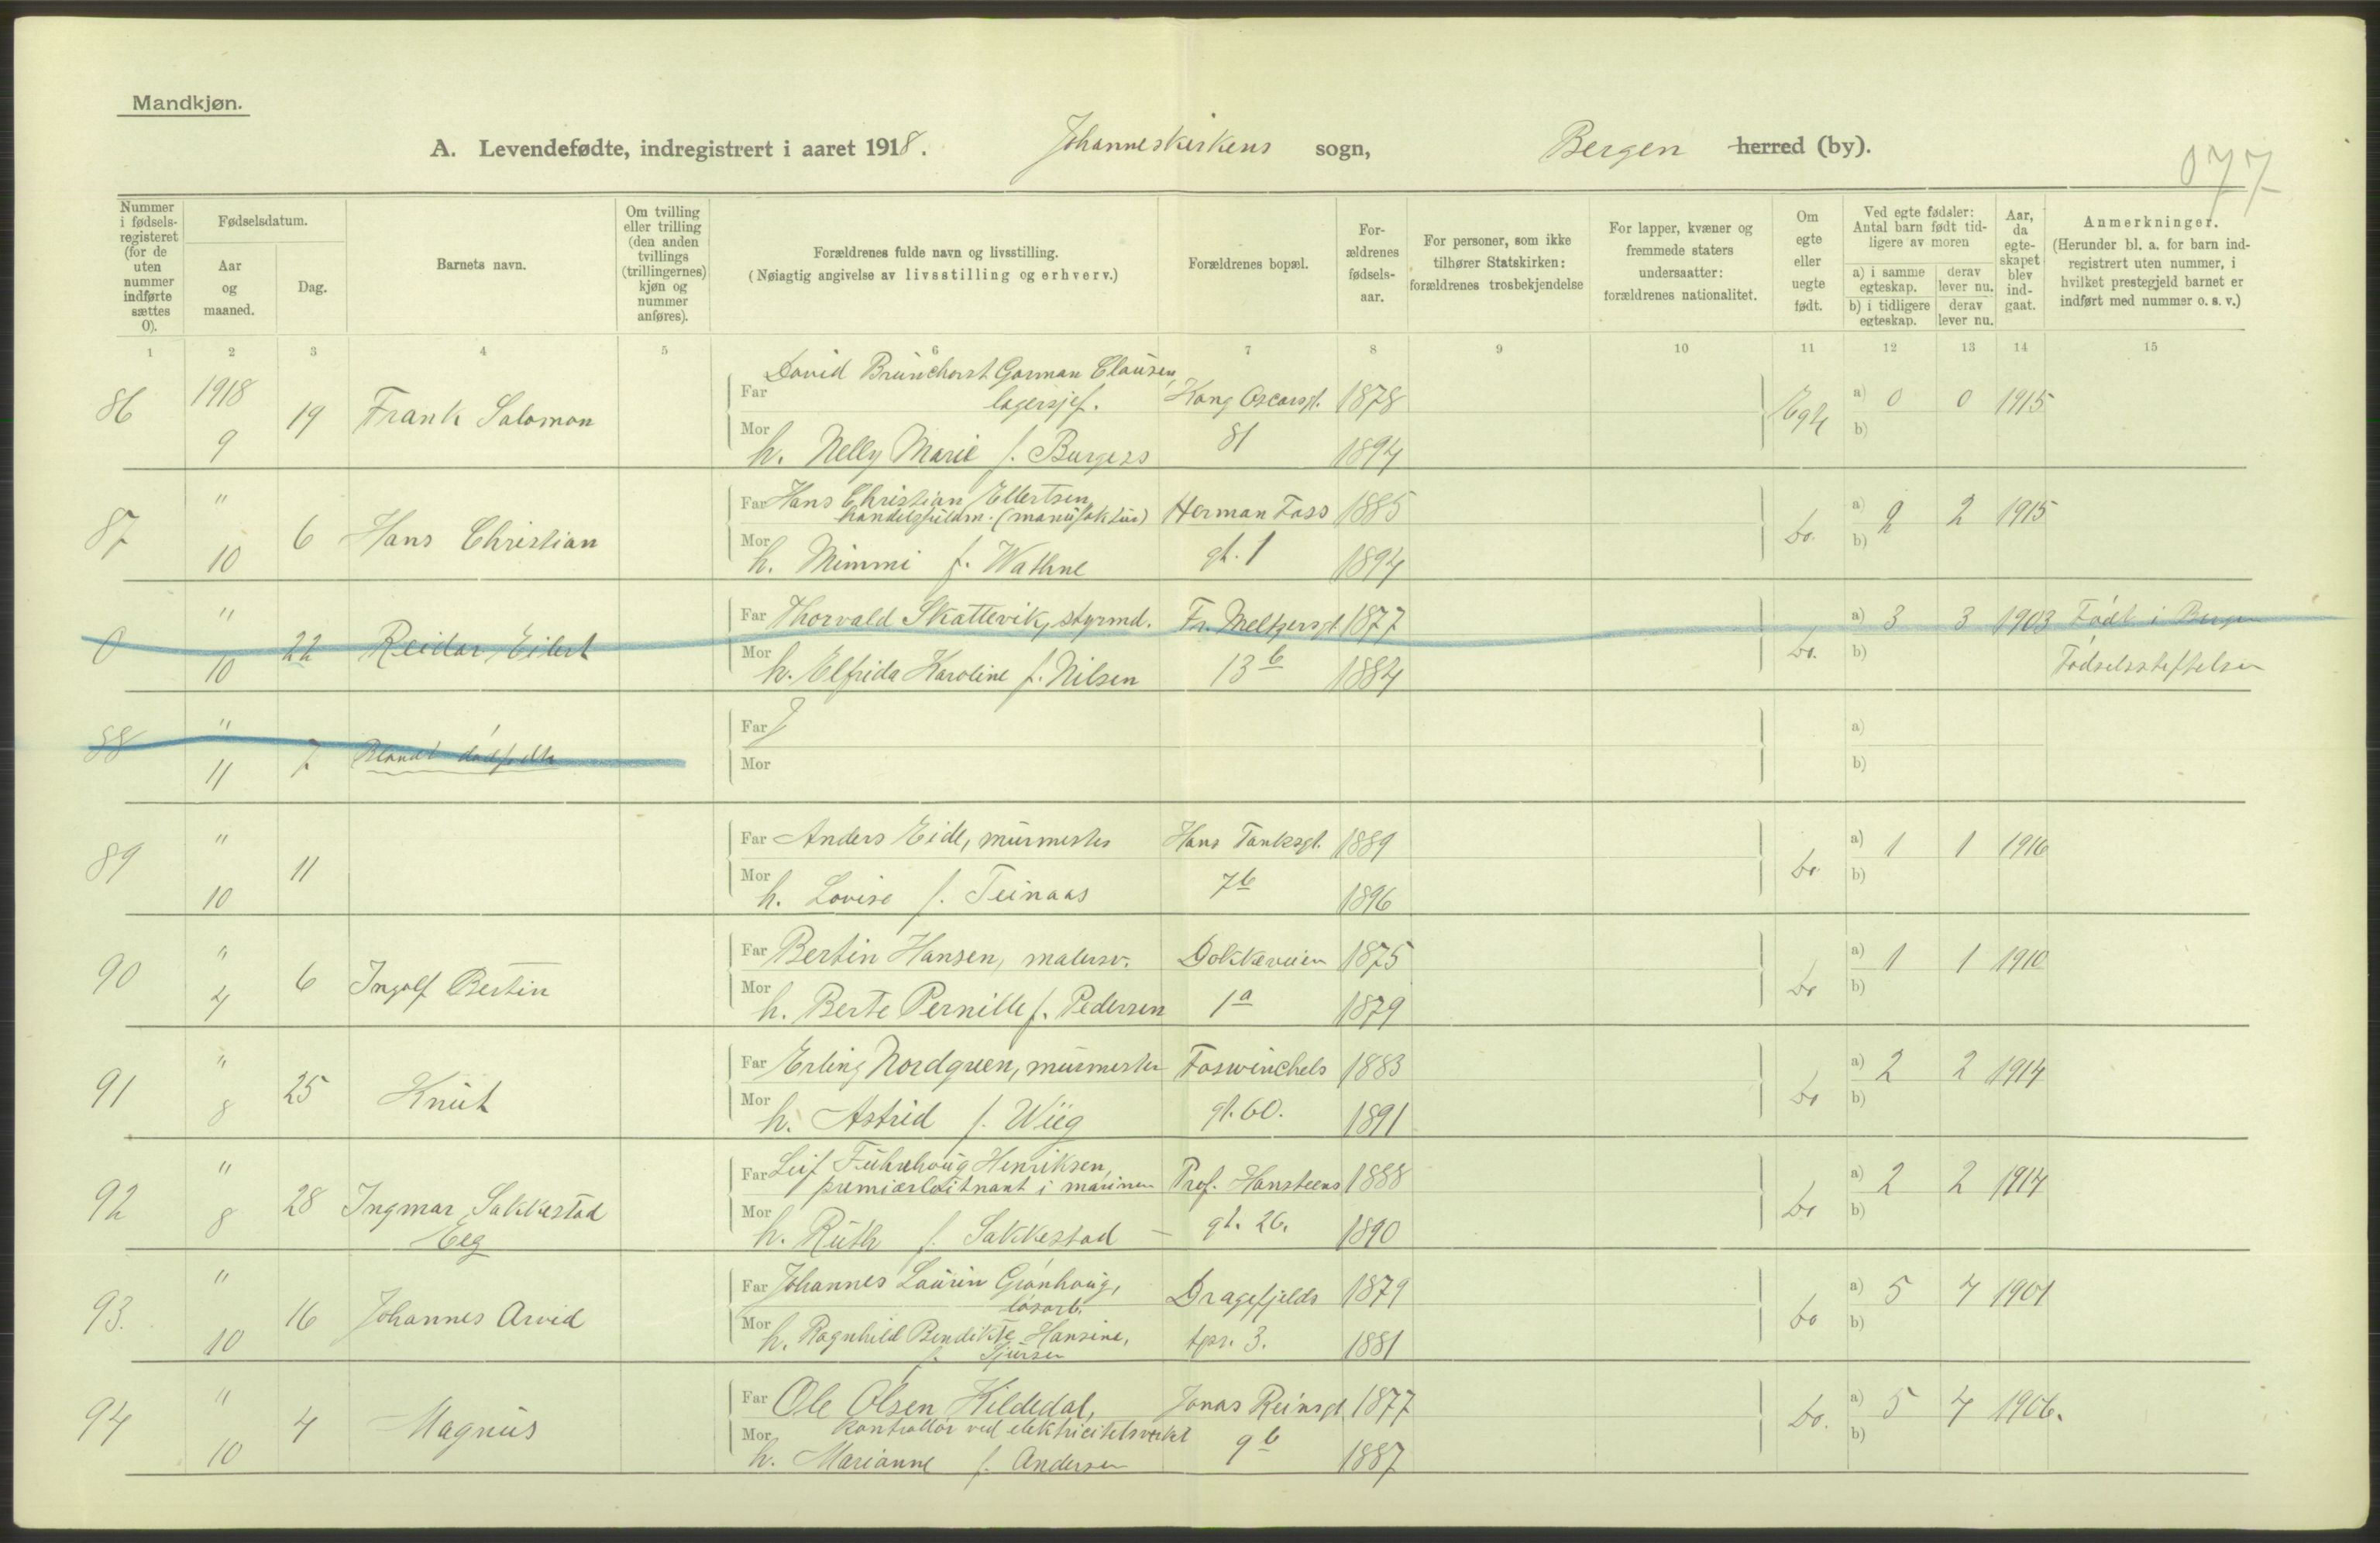 Mandkjøn.
A. Levendefødte, indregistrert i aaret 1918. Johanneskirkens sogn, Bergen herred (by).
077
Nummer i fødsels-registeret (for de uten nummer indførte sættes 0).
Fødselsdatum.
Aar og maaned.
Dag.
Barnets navn.
Om tvilling eller trilling (den anden tvillings (trillingernes) kjøn og nummer anføres).
Forældrenes fulde navn og livsstilling.
(Nøiagtig angivelse av livsstilling og erhverv.)
Forældrenes bopæl.
For-ældrenes fødsels-aar.
For personer, som ikke tilhører Statskirken: forældrenes trosbekjendelse
For lapper, kvæner og fremmede staters undersaatter: forældrenes nationalitet.
Om egte eller uegte født.
Ved egte fødsler: Antal barn født tid-ligere av moren
a) i samme egteskap.
derav lever nu.
b) i tidligere egteskap.
derav lever nu.
Aar, da egte-skapet blev ind-gaat.
Anmerkninger.
(Herunder bl. a. for barn ind-registrert uten nummer, i hvilket prestegjeld barnet er indført med nummer o. s. v.)
1 2 3 4 5 6 7 8 9 10 11 12 13 14 15
David Brunchorst Garman Clausen,
86 1918 19 Frank Salomon Far lagersjef. Kong Oscarsgt. 1878 Egte a) 0 0 1915
9 Mor h. Nelly Marie f. Burgess 81 1894 b)
87 " 6 Hans Christian Far Hans Christian Ellertsen, Herman Foss 1885 do. a) 2 2 1915
handelsfuldm. (manufaktur)
10 Mor h. Mimmi f. Wathne gt. 1 1894 b)
0 " 22 Reidar Eilert Far Thorvald Skattevik, styrmd. Fr. Meltzersgt. 1877 do. a) 3 3 1903 Født i Bergen
10 Mor h. Elfrida Karoline f. Nilsen 13 b 1884 b) Fødselsstiftelse
88 " 7 Blandt dødfødte Far a)
11 Mor b)
89 " 11 Far Anders Eide, murmester Hans Tanksgt. 1889 do a) 1 1 1916
10 Mor h. Lovise f. Teinaas 7 b 1896 b)
90 " 6 Ingolf Bertin Far Bertin Hansen, malersv. Dokkeveien 1875 do a) 1 1 1910
4 Mor h. Berte Pernille f. Pedersen 1 a 1879 b)
91 " 25 Knut Far Erling Nordgreen, murmester Foswinckels 1883 do a) 2 2 1914
8 Mor h. Astrid f. Wiig gt. 60. 1891 b)
92 " 28 Ingmar Sakkestad Far Leif Henriksen, Prof. Hansteens 1888 do a) 2 2 1914
premiærløitnant i marinen
8 Eeg Mor h. Ruth f. Sakkestad gt. 26. 1890 b)
93. " 16 Johannes Arvid Far Johannes Laurin Grønhaug, Dragefjelds 1879 do a) 5 4 1901
løsarb.
10 Mor h. Ragnhild Bendikte Hansine, tpr. 3. 1881 b)
f. Sjursen
94 " 4 Magnus Far Ole Olsen Hildedal, Jonas Reinsgt. 1877 do. a) 5 4 1906.
kontrollør ved elektricitetsverket
10 Mor h. Marianne f. Andersen 9 b 1887 b)